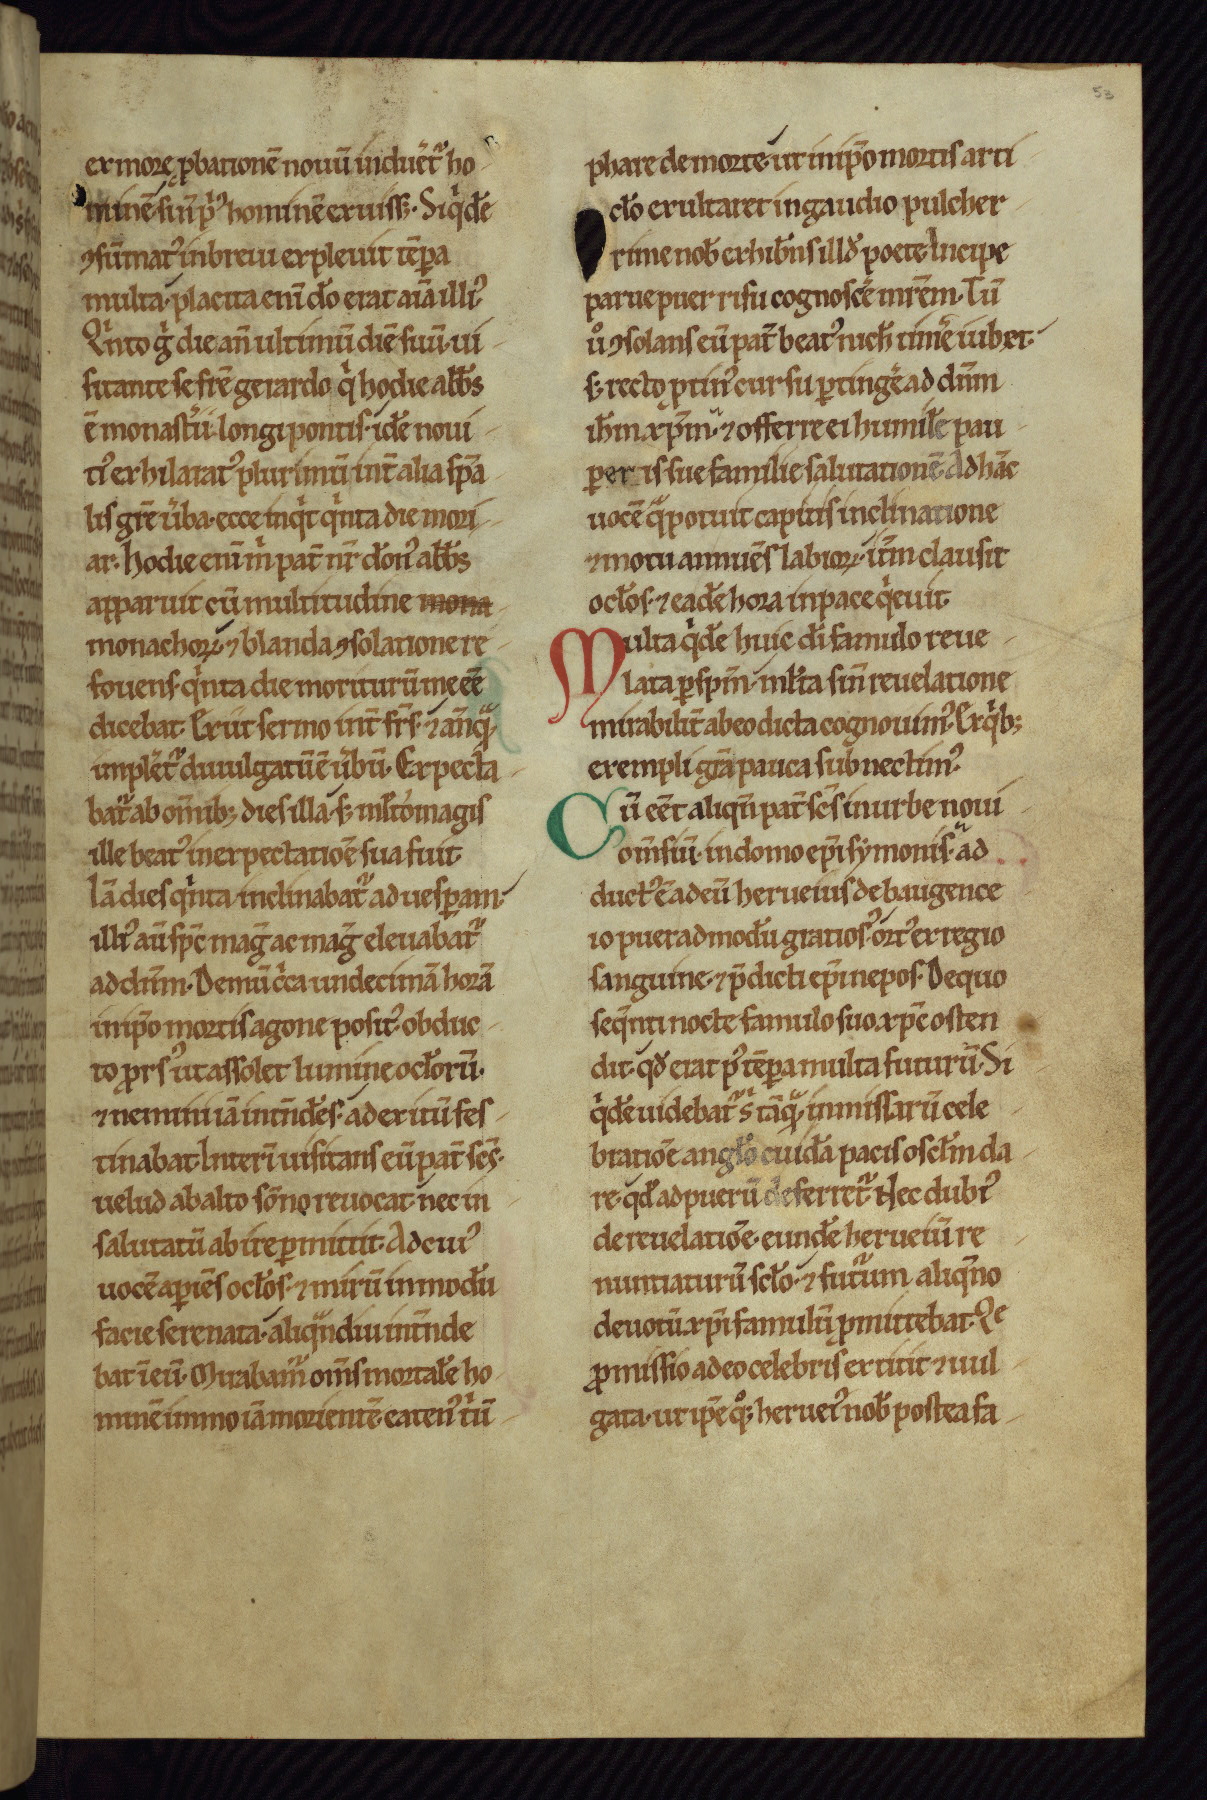 53
ex more ꝓbationē nouū induēt᷑ ho-
minē sūp̄ꝰ hominē exuiss&. Siq̇dē
ꝯsūmatꝰ in breui expleuit tēpa
multa. placita eni d̄o erat aīa illiꝰ
Qͥnto gͥ die an̄ ultimū diē suū ui-
sitante se fr̄e gerardo qͥ hodie abb̄s
ē monast̄ii longi pontis. idē noui-
tiꝰ exhilaratꝰ plurimū int̄ alia sp̄a-
lis gr̄e ūba. ecce inq̇t qͥnta die mori-
ar. Hodie eni m̄ pat̄ nr̄ dōnꝰ abb̄s
apparuit cū multitudine mona
monachoꝝ. ⁊ blanda ꝯsolatione re-
fouens. qͥnta die moriturū me eē
dicebat. Exiit sermo int̄ fr̄s. ⁊ an̄qͣ
implēt᷑ diuulgatū ē ūbū. Expecta-
bat᷑ ab om̄ib; dies illa. s; mĺto magis
ille beatꝰ inexpectatiōē sua fuit.
Iā dies qͥnta inclinabat᷑ ad uesꝑam.
illiꝰ aū sp̄c mag̅ ac mag̅ eleuabat᷑
ad dn̄m. Demū cͥca undecimā horā
in ip̄o mortis agone positꝰ. obduc-
to ꝓrsꝰ ut assolet lumine octorū.
⁊ nemini iā intn̄dēs. ad exitū fes-
tinabat. Interī uisitans eū pat̄ sc̄s.
uelud ab alto sōno reuocat. nec in-
salutatū abire ꝑmittit. Ad cuiꝰ
uocē aꝑiēs oclōs. ⁊ mirū in modū
facie serenata. aliqͣndiu intn̄de
bat ī eū. Mirabam᷑ om̄s mortalē ho-
minē immo iā morientē. eatenꝰ tͥū-
phare de morte. ut in ip̄o mortis arti-
cl̄o exultaret in gaudio pulcher-
rime nob̄ exhibn̄s illd̄ poete. Incipe
parue puer risu cognoscē mr̄em. Tū
ůꝯsolans eū pat̄ beatꝰ nich̄ timē iubet.
s; recto ꝓtinꝰ cursu ꝑtingē ad dn̄m
ihm xp̄m. ⁊ offerre ei humilē pau-
ꝑeris sue familie salutationē. Ad hāc
uocē qͣ potuit capitis inclinatione
⁊ motu annuēs labioꝝ. it̄m clausit
oclōs. ⁊ eadē hora in pace qͥeuit.
Multa qͥdē huic dī famulo reue-
lata ꝑ sp̄m. mĺta sīn reuelatione
mirabilit̄ ab eo dicta cognouimꝰ. Ex qͥb;
exempli grā pauca subnectimꝰ.
Cū eēt aliqn̄ pat̄ sc̄s in urbe noui-
omſiū. in domo ep̄i symonis. ad
ductꝰ ē ad eū herueius de baugence
io puer admodū gratiosꝰ. ortꝰ ex regio
sanguine. ⁊ p̄dicti ep̄i nepos. De quo
seqn̄ti nocte famulo suo xp̄c osten-
dit. qd̄ erat pꝰ tēpa multa futurū. Si
qͥdē uidebat᷑ s tāqͣ in missarū cele-
bratiōe anglo cuidā pacis oscl̄m da-
re. qd̄ ad puerū deferret᷑. Nec dubiꝰ
de reuelatiōe. eundē herueiū re-
nuntiaturū scl̄o. ⁊ futurum aliqn̄no
deuotū xp̄i famulū ꝓmittebat. Qe
ꝓmissio adeo celebris extitit ⁊ uul-
gata. ut ip̄e qͦ; herueiꝰ nob̄ postea fa-